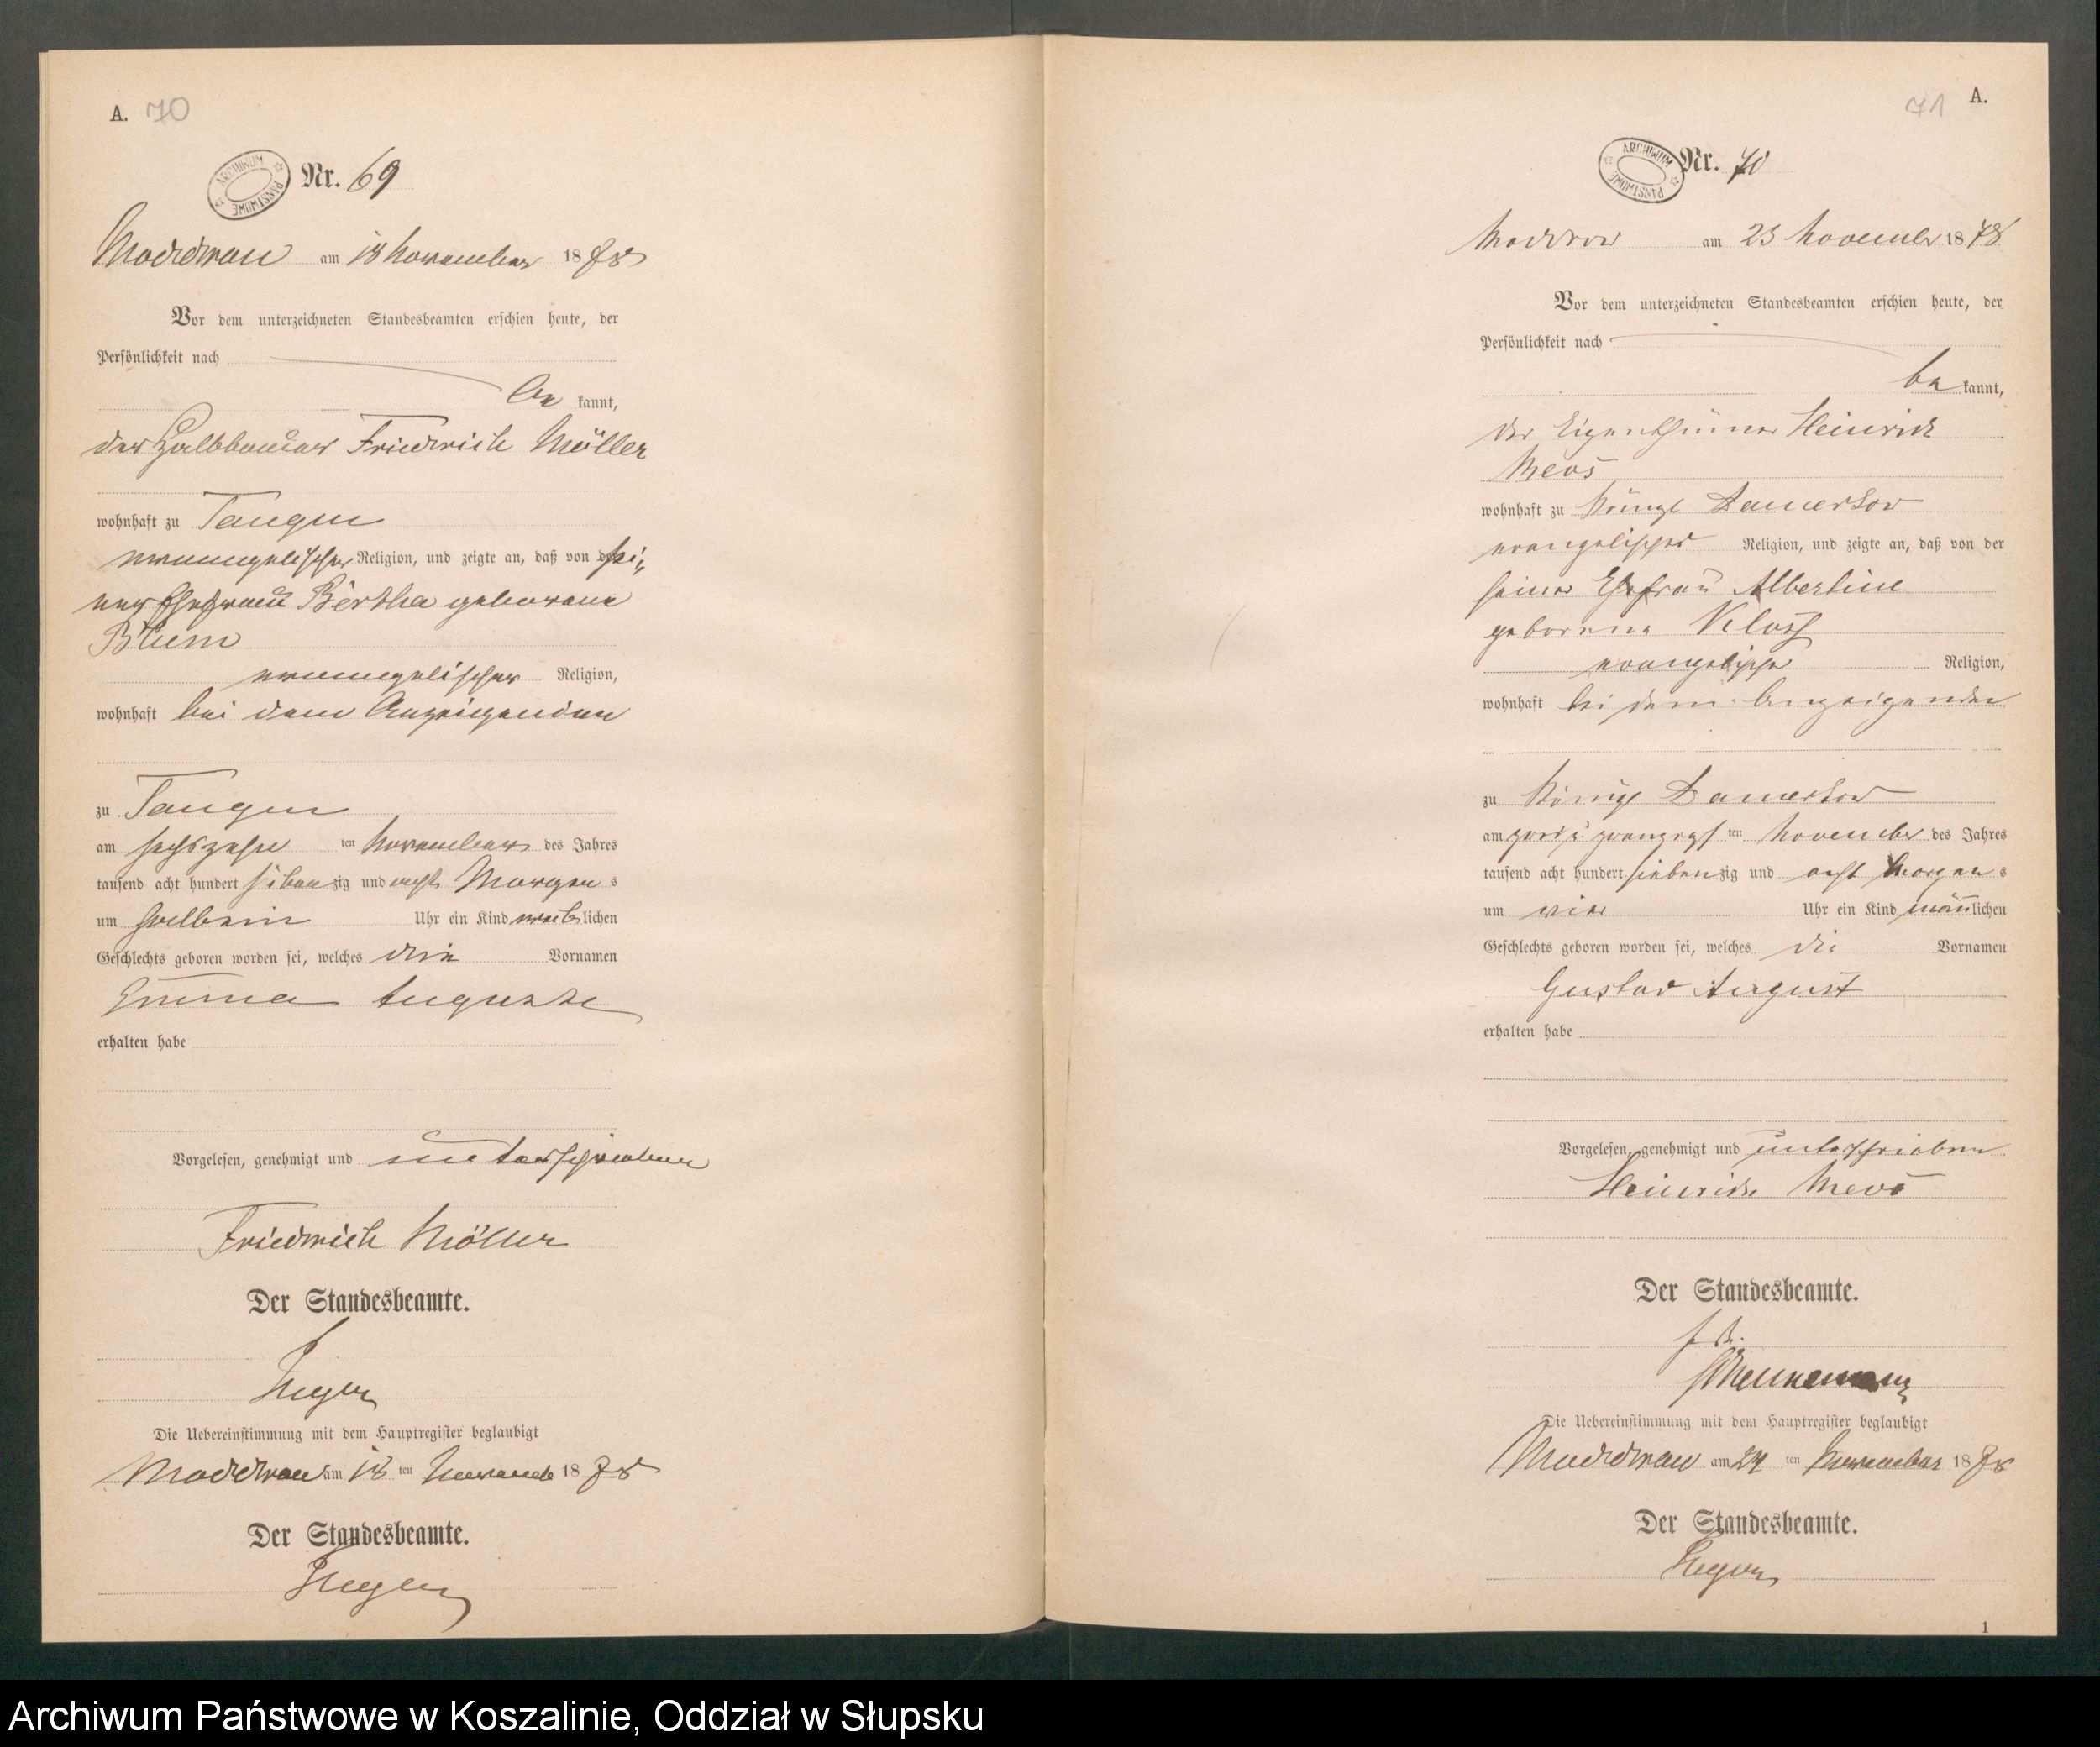 A. 70
ARCHIWUM PAŃSTWOWE
Nr. 69
Moddrow am 18 November 1878
Vor dem unterzeichneten Standesbeamten erschien heute, der
Persönlichkeit nach
be kannt,
der Halbbauer Friedrich Möller
wohnhaft zu Tangen
evangelischer Religion, und zeigte an, daß von der sei„
ner Ehefrau Bertha geborene
Blum
evangelischer Religion,
wohnhaft bei dem Anzeigenden
zu Tangen
am sechszehn ten November des Jahres
tausend acht hundert siebenzig und acht Morgens
um halbein Uhr ein Kind weiblichen
Geschlechts geboren worden sei, welches die Vornamen
Emma Auguste
erhalten habe
Vorgelesen, genehmigt und unterschrieben
Friedrich Möller
Der Standesbeamte.
Die Uebereinstimmung mit dem Hauptregister beglaubigt
Moddrow am 18 ten November 1878
Der Standesbeamte.
71 A.
ARCHIWUM PAŃSTWOWE
Nr. 70
Moddrow am 23 November 1878
Vor dem unterzeichneten Standesbeamten erschien heute, der
Persönlichkeit nach
be kannt,
der Eigenthümer Heinrich
Mews
wohnhaft zu Königl Damerkow
evangelischer Religion, und zeigte an, daß von der
seiner Ehefrau Albertine
geborene Kloss
evangelischer Religion,
wohnhaft bei dem Anzeigenden
zu Königl Damerkow
am zwei u. zwanzigs ten November des Jahres
tausend acht hundert siebenzig und acht Morgens
um vier Uhr ein Kind männlichen
Geschlechts geboren worden sei, welches die Vornamen
Gustav August
erhalten habe
Vorgelesen, genehmigt und unterschrieben
Heinrich Mews
Der Standesbeamte.
Die Uebereinstimmung mit dem Hauptregister beglaubigt
Moddrow am 24 ten November 1878
Der Standesbeamte.
1
Archiwum Państwowe w Koszalinie, Oddział w Słupsku